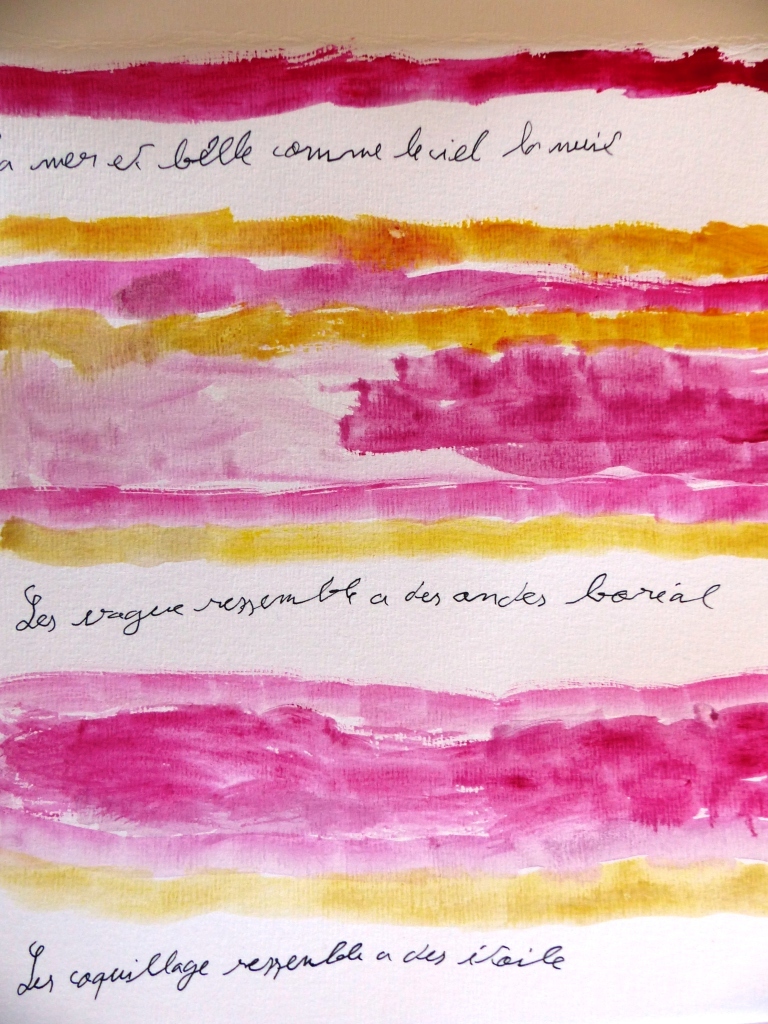 la mer et bélle comme le ciel la nuit
Les vague ressemble a des ondes boréal
Les coquillage ressemble a des étoile